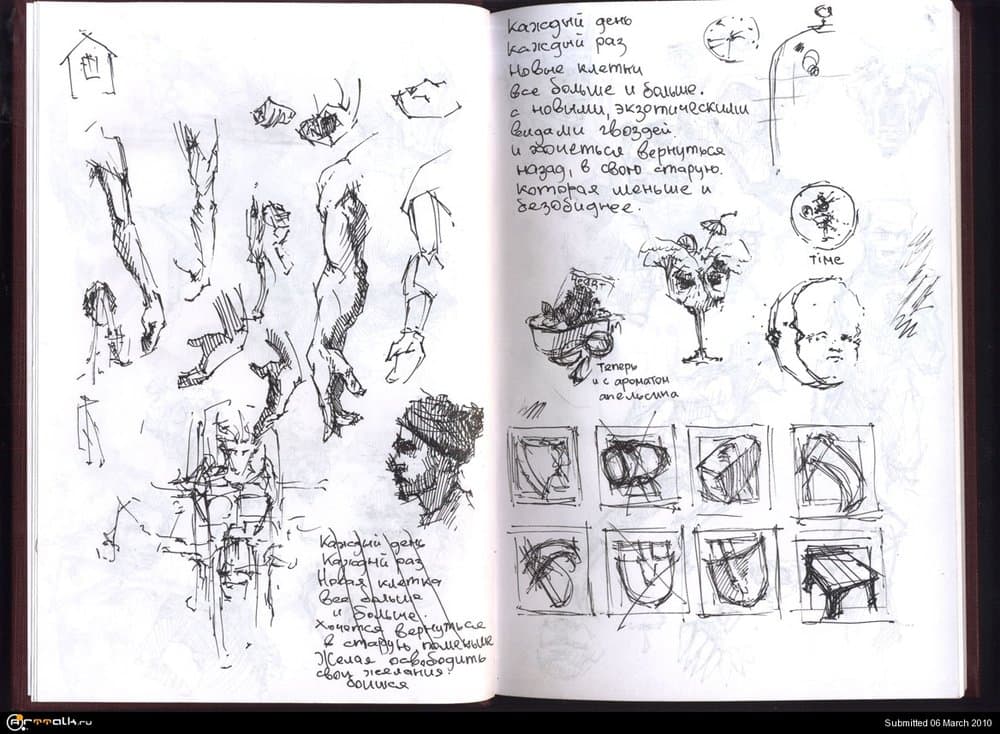 Каждый день
Каждый раз
Новая клетка
все больше
и больше.
Хочется вернуться
в старую, поменьше
Желая освободить
свои желания.
боимся
Каждый день
каждый раз
новые клетки
все больше и больше.
с новыми, экзотическими
видами гвоздей.
и хочеться вернуться
назад, в свою старую.
которая меньше и
безобиднее.
TIME
Теперь
и с ароматом
апельсина
ArtTalk.ru
Submitted 06 March 2010